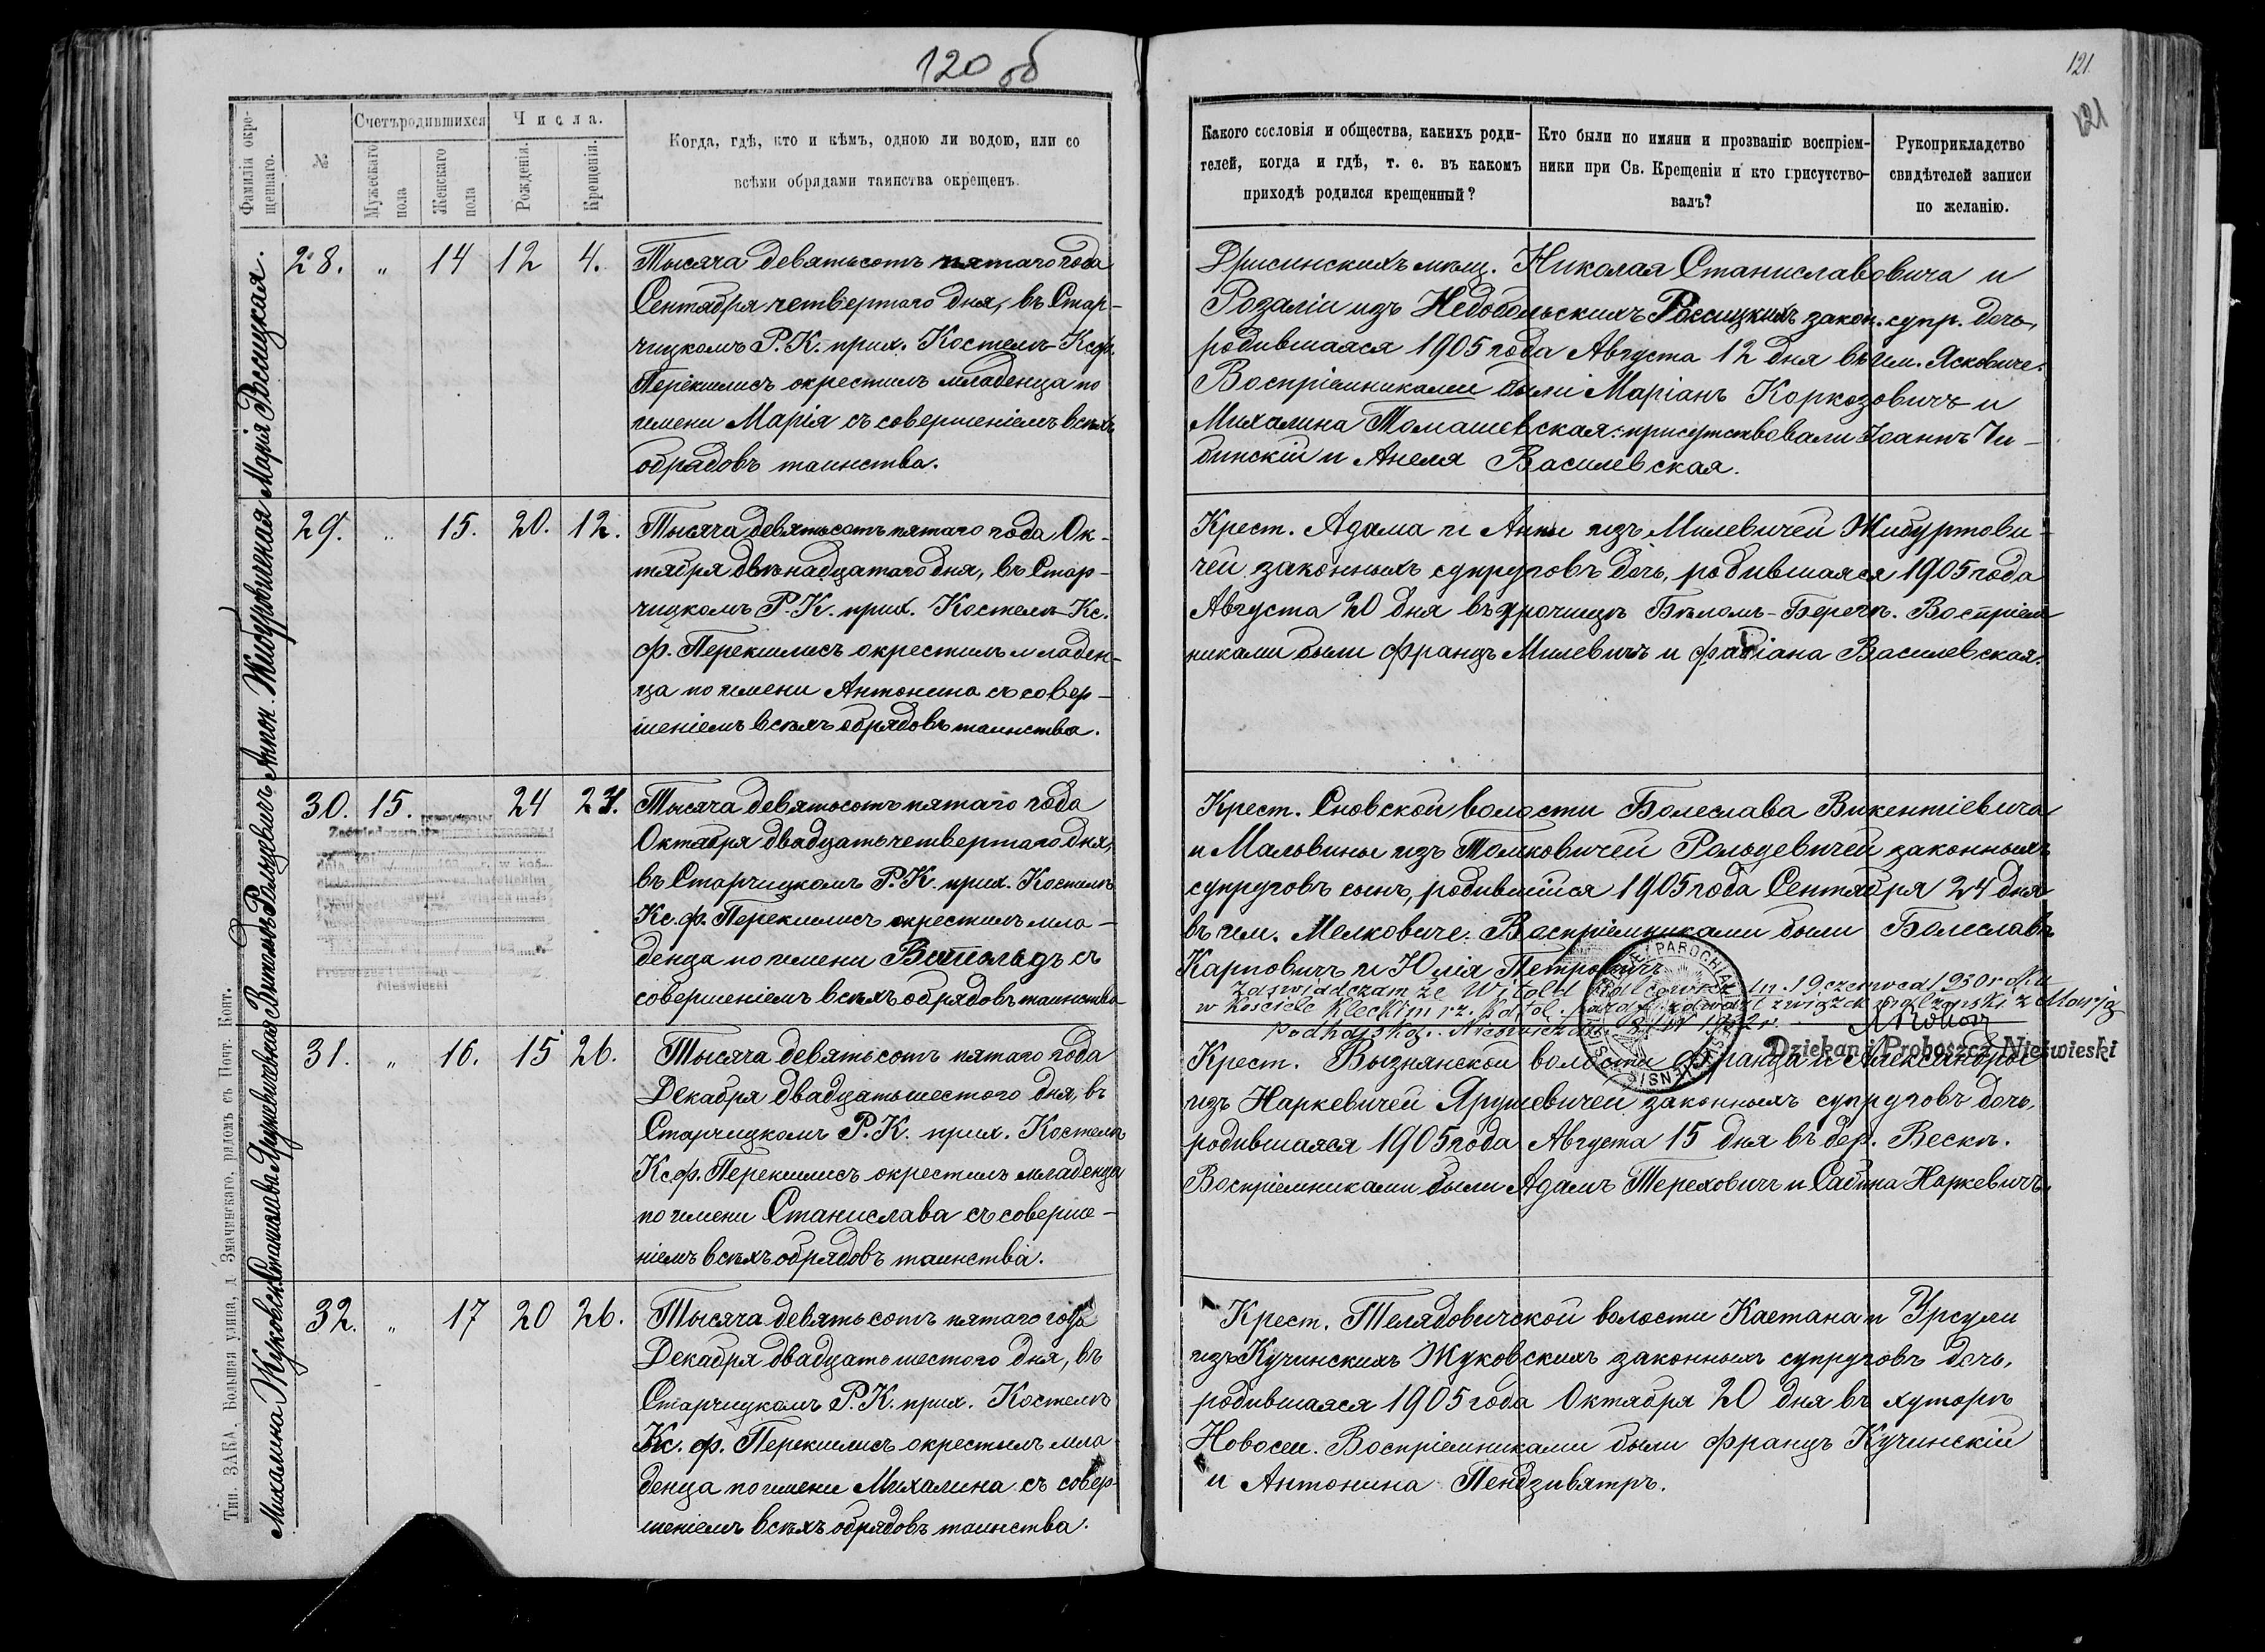 120 об
Фамилія окре-
щеннаго.
№
Счетъ родившихся
Мужескаго
пола
Женскаго
пола
Числа.
Рожденія.
Крещенія.
Когда, гдѣ, кто и кѣмъ, одною ли водою, или со
всѣми обрядами таинства окрещенъ.
Марія Россицкая.
28. " 14 12 4.
Тысяча девятьсотъ пятаго года
Сентября четвертаго дня, въ Стар-
чицкомъ Р. К. прих. Костелѣ Кс. ф.
Перекшисъ окрестилъ младенца по
имени Марія съ совершеніемъ всѣхъ
обрядовъ таинства.
Антон. Жибуртовичская
29. " 15. 20. 12.
Тысяча девятьсотъ пятаго года Ок-
тября двѣнадцатаго дня, въ Стар-
чицкомъ Р. К. прих. Костелѣ Кс.
ф. Перекшисъ окрестилъ младен-
ца по имени Антонина съ совер-
шеніемъ всѣхъ обрядовъ таинства.
Витольдъ Рольцевичъ
30. 15. 24 24.
Nieświeski
Тысяча девятьсотъ пятаго года
Октября двадцать четвертаго дня,
въ Старчицкомъ Р. К. прих. Костелѣ
Кс. ф. Перекшисъ окрестилъ мла-
денца по имени Витольдъ съ
совершеніемъ всѣхъ обрядовъ таинства
Станислава Ярушевичевна
31. " 16. 15 26.
Тысяча девятьсотъ пятаго года
Декабря двадцать шестого дня, въ
Старчицкомъ Р. К. прих. Костелѣ
Кс. ф. Перекшисъ окрестилъ младенца
по имени Станислава съ соверше-
ніемъ всѣхъ обрядовъ таинства.
Михалина Жуковская
32. " 17 20 26.
Тысяча девятьсотъ пятаго года
Декабря двадцать шестого дня, въ
Старчицкомъ Р. К. прих. Костелѣ
Кс. ф. Перекшисъ окрестилъ мла-
денца по имени Михалина съ совер-
шеніемъ всѣхъ обрядовъ таинства.
Тип. ЗАКА, Большая улица, д. Значинскаго, рядомъ съ Почт. Конт.
121.
121
Какого сословія и общества, какихъ роди-
телей, когда и гдѣ, т. е. въ какомъ
приходѣ родился крещенный?
Кто были по имяни и прозванію воспріем-
ники при Св. Крещеніи и кто присутство-
валъ?
Рукоприкладство
свидѣтелей записи
по желанію.
Дрисинскихъ мѣщ. Николая Станиславовича и
Розаліи изъ Недобольскихъ Россицкихъ закон. супр. дочь,
родившаяся 1905 года Августа 12 дня въ им. Ясковиче.
Воспріемниками были Маріанъ Коркозовичъ и
Михалина Томашевская: присутствовали Іоаннъ Чи-
бинскій и Анеля Василевская.
Крест. Адама и Анны изъ Милевичей Жибуртови-
чей законныхъ супруговъ дочь, родившаяся 1905 года
Августа 20 дня въ урочищѣ Бѣломъ-Берегѣ. Воспріем
никами были Францъ Милевичъ и Фабіана Василевская.
Крест. Сновской волости Болеслава Викентіевича
и Мальвины изъ Томковичей Рольцевичей законныхъ
супруговъ сынъ, родившійся 1905 года Сентября 24 дня
въ им. Мелковиче. Воспріемниками были Болеславъ
Карповичъ и Юлія Петровичъ.
Zaświadczam że Witold Rolcewicz dn. 19 czerwca 1930 roku
w Kościele Kleckim rz. katol. paraf. zawarł związek małżeński z Marją
Podhajską. Nieśwież dn.
Dziekan i Proboszcz Nieświeski
Крест. Вызнянской волости Франца и Александры
изъ Наркевичей Ярушевичей законныхъ супруговъ дочь,
родившаяся 1905 года Августа 15 дня въ дер. Вескѣ.
Воспріемниками были Адамъ Тереховичъ и Сабина Наркевичъ.
Крест. Телядовичской волости Каетана и Урсули
изъ Кучинскихъ Жуковскихъ законныхъ супруговъ дочь,
родившаяся 1905 года Октября 20 дня въ хуторѣ
Новосел. Воспріемниками были Францъ Кучинскій
и Антонина Пендзивятръ.